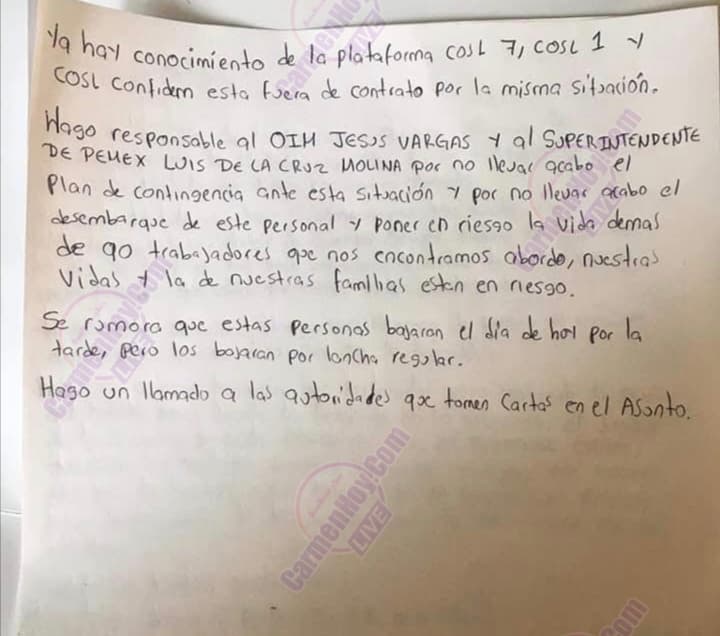 Ya hay conocimiento de la plataforma COSL 7, COSL 1 y
COSL Confidem esta fuera de contrato por la misma situación.
Hago responsable al OIM JESUS VARGAS Y al SUPERINTENDENTE
DE PEMEX LUIS DE LA CRUZ MOLINA por no llevar acabo el
Plan de contingencia ante esta situación y por no llevar acabo el
desembarque de este personal y poner en riesgo la vida demas
de 90 trabajadores que nos encontramos abordo, nuestras
Vidas y la de nuestras familias estan en riesgo.
Se rumora que estas personas bajaran el día de hoy por la
tarde, pero los bajaran por lancha regular.
Hago un llamado a las autoridades que tomen Cartas en el Asunto.
CarmenHoy.Com
LIVE
CarmenHoy.Com
LIVE
CarmenHoy.Com
LIVE